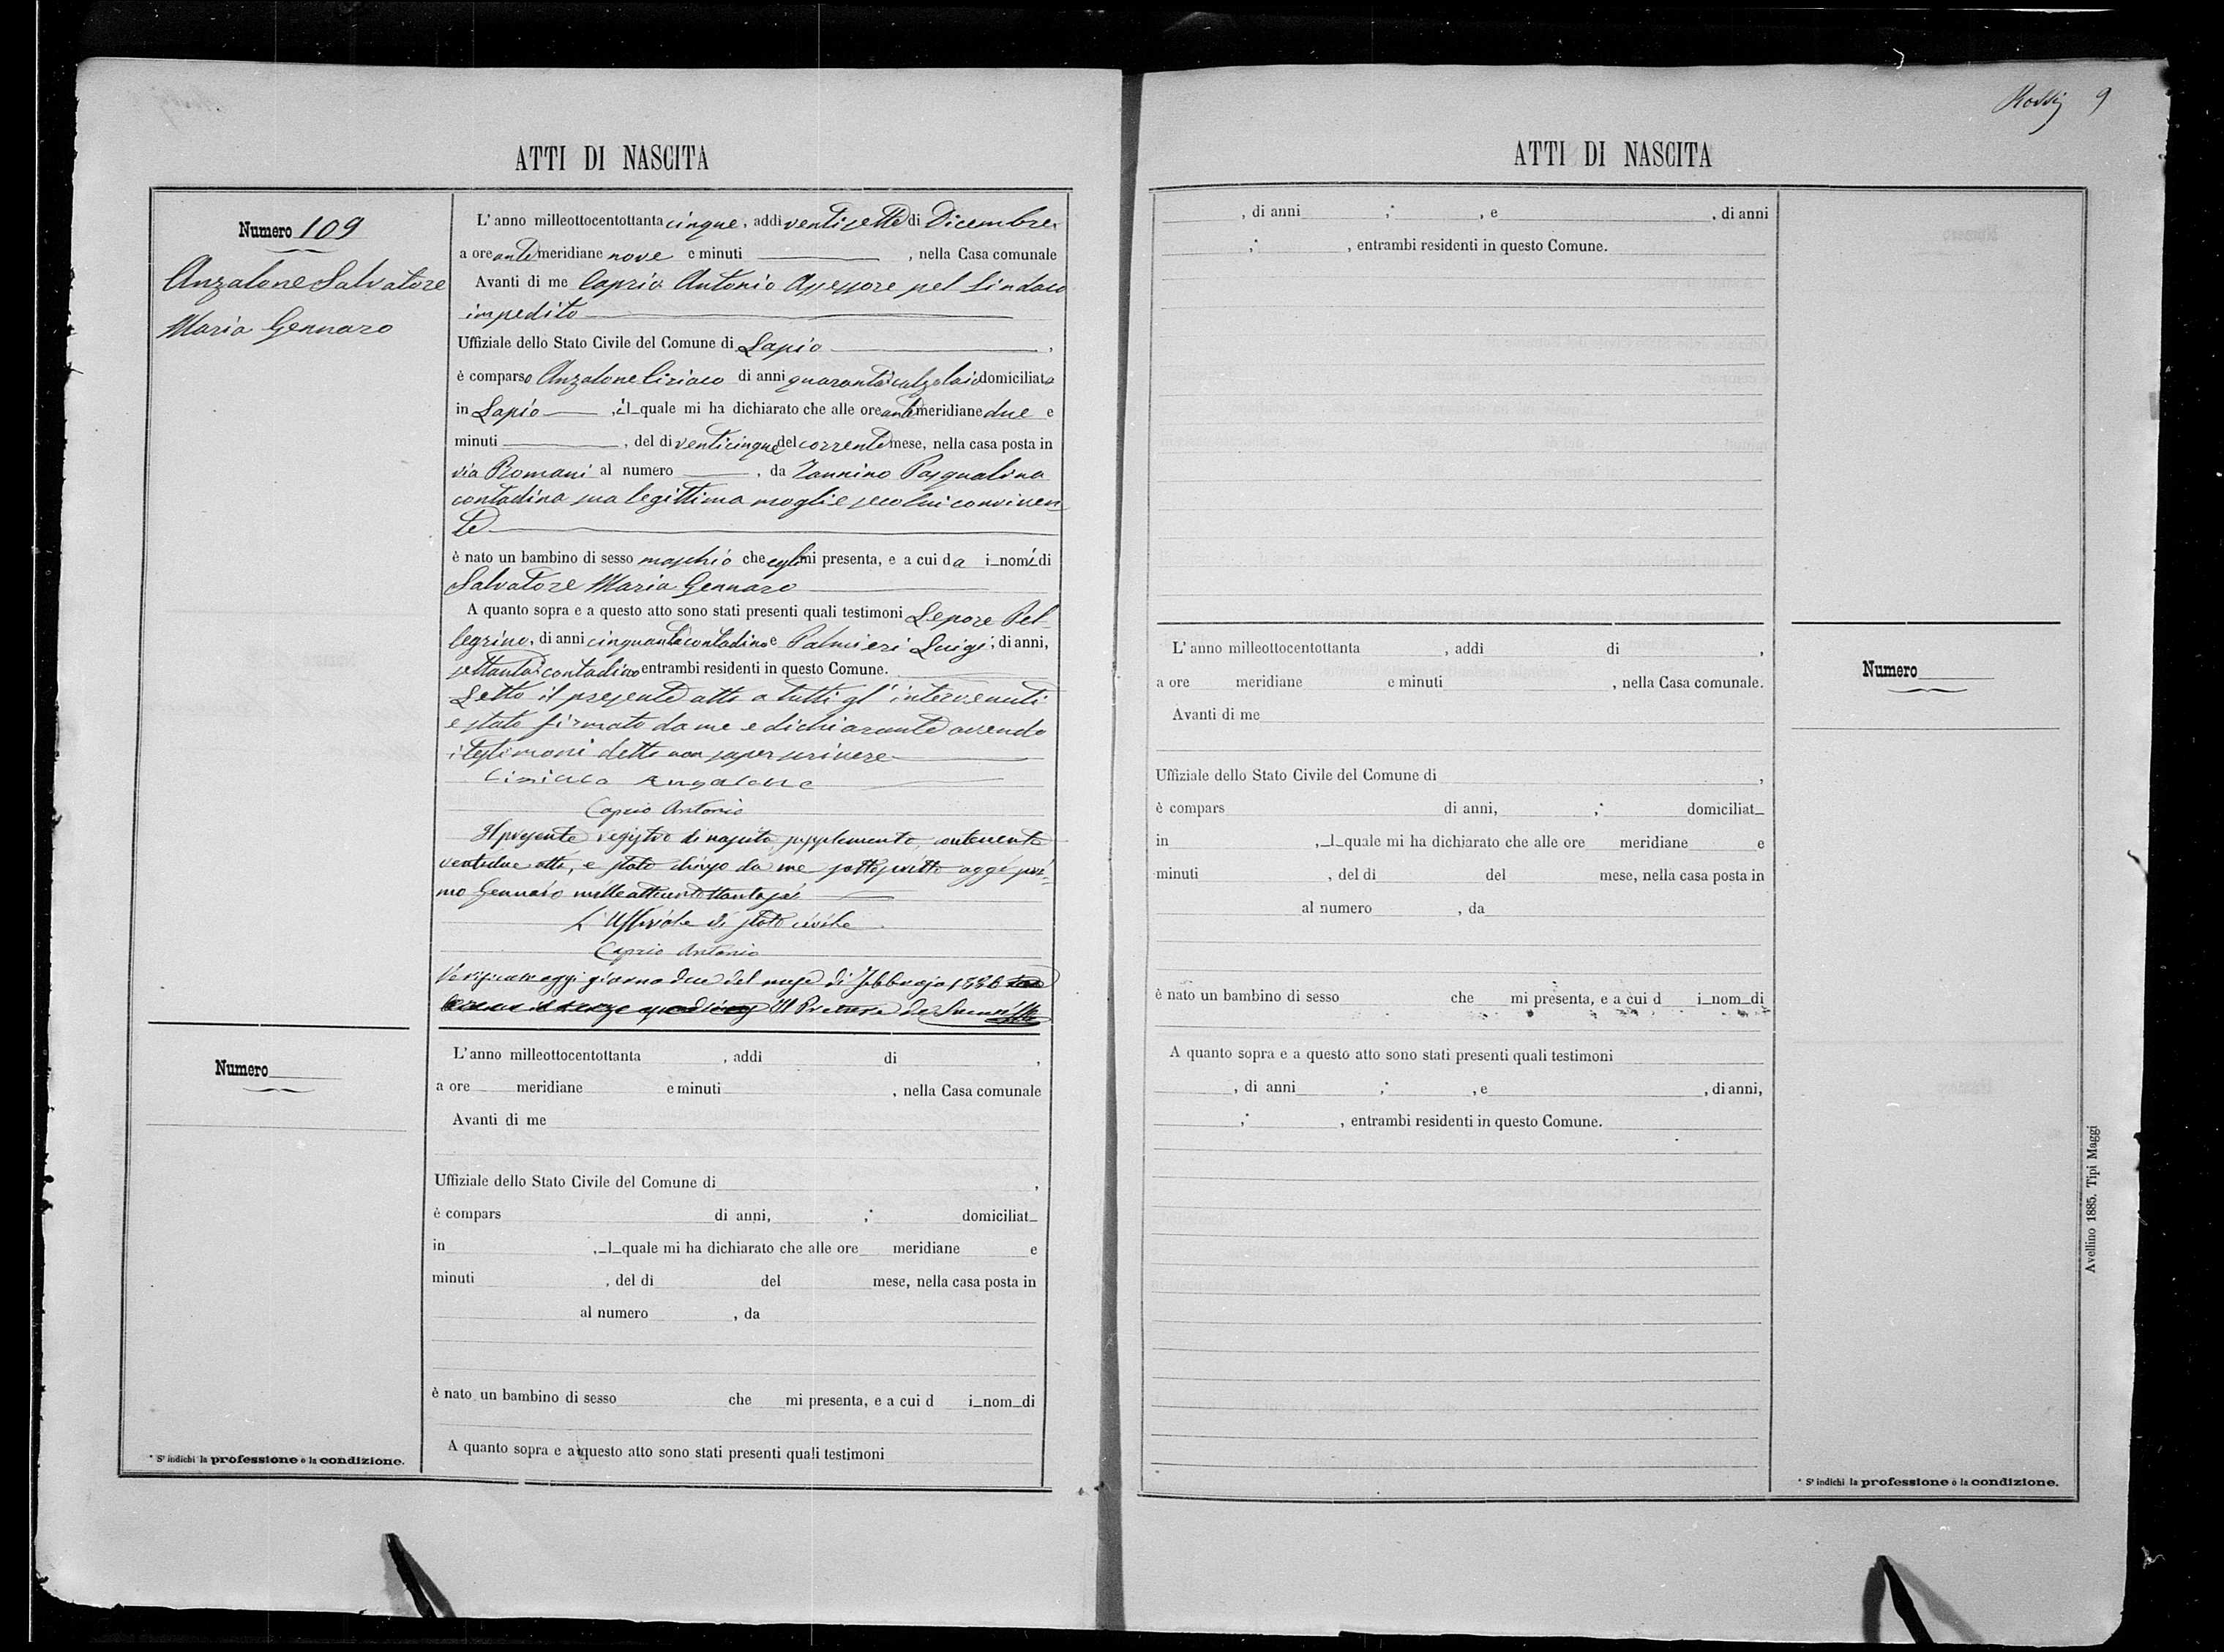 ATTI DI NASCITA
Numero 109
Anzalone Salvatore
Maria Gennaro
L'anno milleottocentottanta cinque, addì ventisette di Dicembre,
a ore anti meridiane nove e minuti , nella Casa comunale
Avanti di me Caprio Antonio Assessore pel Sindaco
impedito
Uffiziale dello Stato Civile del Comune di Lapio ,
è comparso Anzalone Ciriaco di anni quaranta calzolaio domiciliato
in Lapio , il quale mi ha dichiarato che alle ore anti meridiane due e
minuti , del dì venticinque del corrente mese, nella casa posta in
via Romani al numero , da Zannino Pasqualina
contadina sua legittima moglie seco lui conviven-
te
è nato un bambino di sesso maschio che egli mi presenta, e a cui da i nomi di
Salvatore Maria Gennaro
A quanto sopra e a questo atto sono stati presenti quali testimoni Lepore Pel-
legrino, di anni cinquanta contadino e Palmieri Luigi, di anni,
settanta contadino entrambi residenti in questo Comune.
Letto il presente atto a tutti gl'intervenuti
e stato firmato da me e dichiarante avendo
i testimoni detto non saper scrivere
Ciriaco Anzalone
Caprio Antonio
Il presente registro di nascita, supplemento, contenente
ventidue atti, e stato chiuso da me sottoscritto oggi pri-
mo Gennaio milleottocentottantasei
L'Uffiziale di stato civile
Caprio Antonio
Verificato oggi giorno due del mese di Febbraio 1886
Il Pretore
Numero
L'anno milleottocentottanta , addì di ,
a ore meridiane e minuti , nella Casa comunale
Avanti di me
Uffiziale dello Stato Civile del Comune di ,
è compars di anni, ;* domiciliat_
in , _l_quale mi ha dichiarato che alle ore meridiane e
minuti , del dì del mese, nella casa posta in
al numero , da
è nato un bambino di sesso che mi presenta, e a cui d i_nom_di
A quanto sopra e a questo atto sono stati presenti quali testimoni
* S'indichi la professione o la condizione.
Rossi 9
ATTI DI NASCITA
, di anni ;* , e , di anni
;* , entrambi residenti in questo Comune.
Numero
L'anno milleottocentottanta , addì di ,
a ore meridiane e minuti , nella Casa comunale.
Avanti di me
Uffiziale dello Stato Civile del Comune di ,
è compars di anni, ;* domiciliat_
in , _l_quale mi ha dichiarato che alle ore meridiane e
minuti , del dì del mese, nella casa posta in
al numero , da
è nato un bambino di sesso che mi presenta, e a cui d i_nom_di
A quanto sopra e a questo atto sono stati presenti quali testimoni
, di anni ;* , e , di anni,
;* , entrambi residenti in questo Comune.
* S'indichi la professione o la condizione.
Avellino 1885. Tipi Maggi